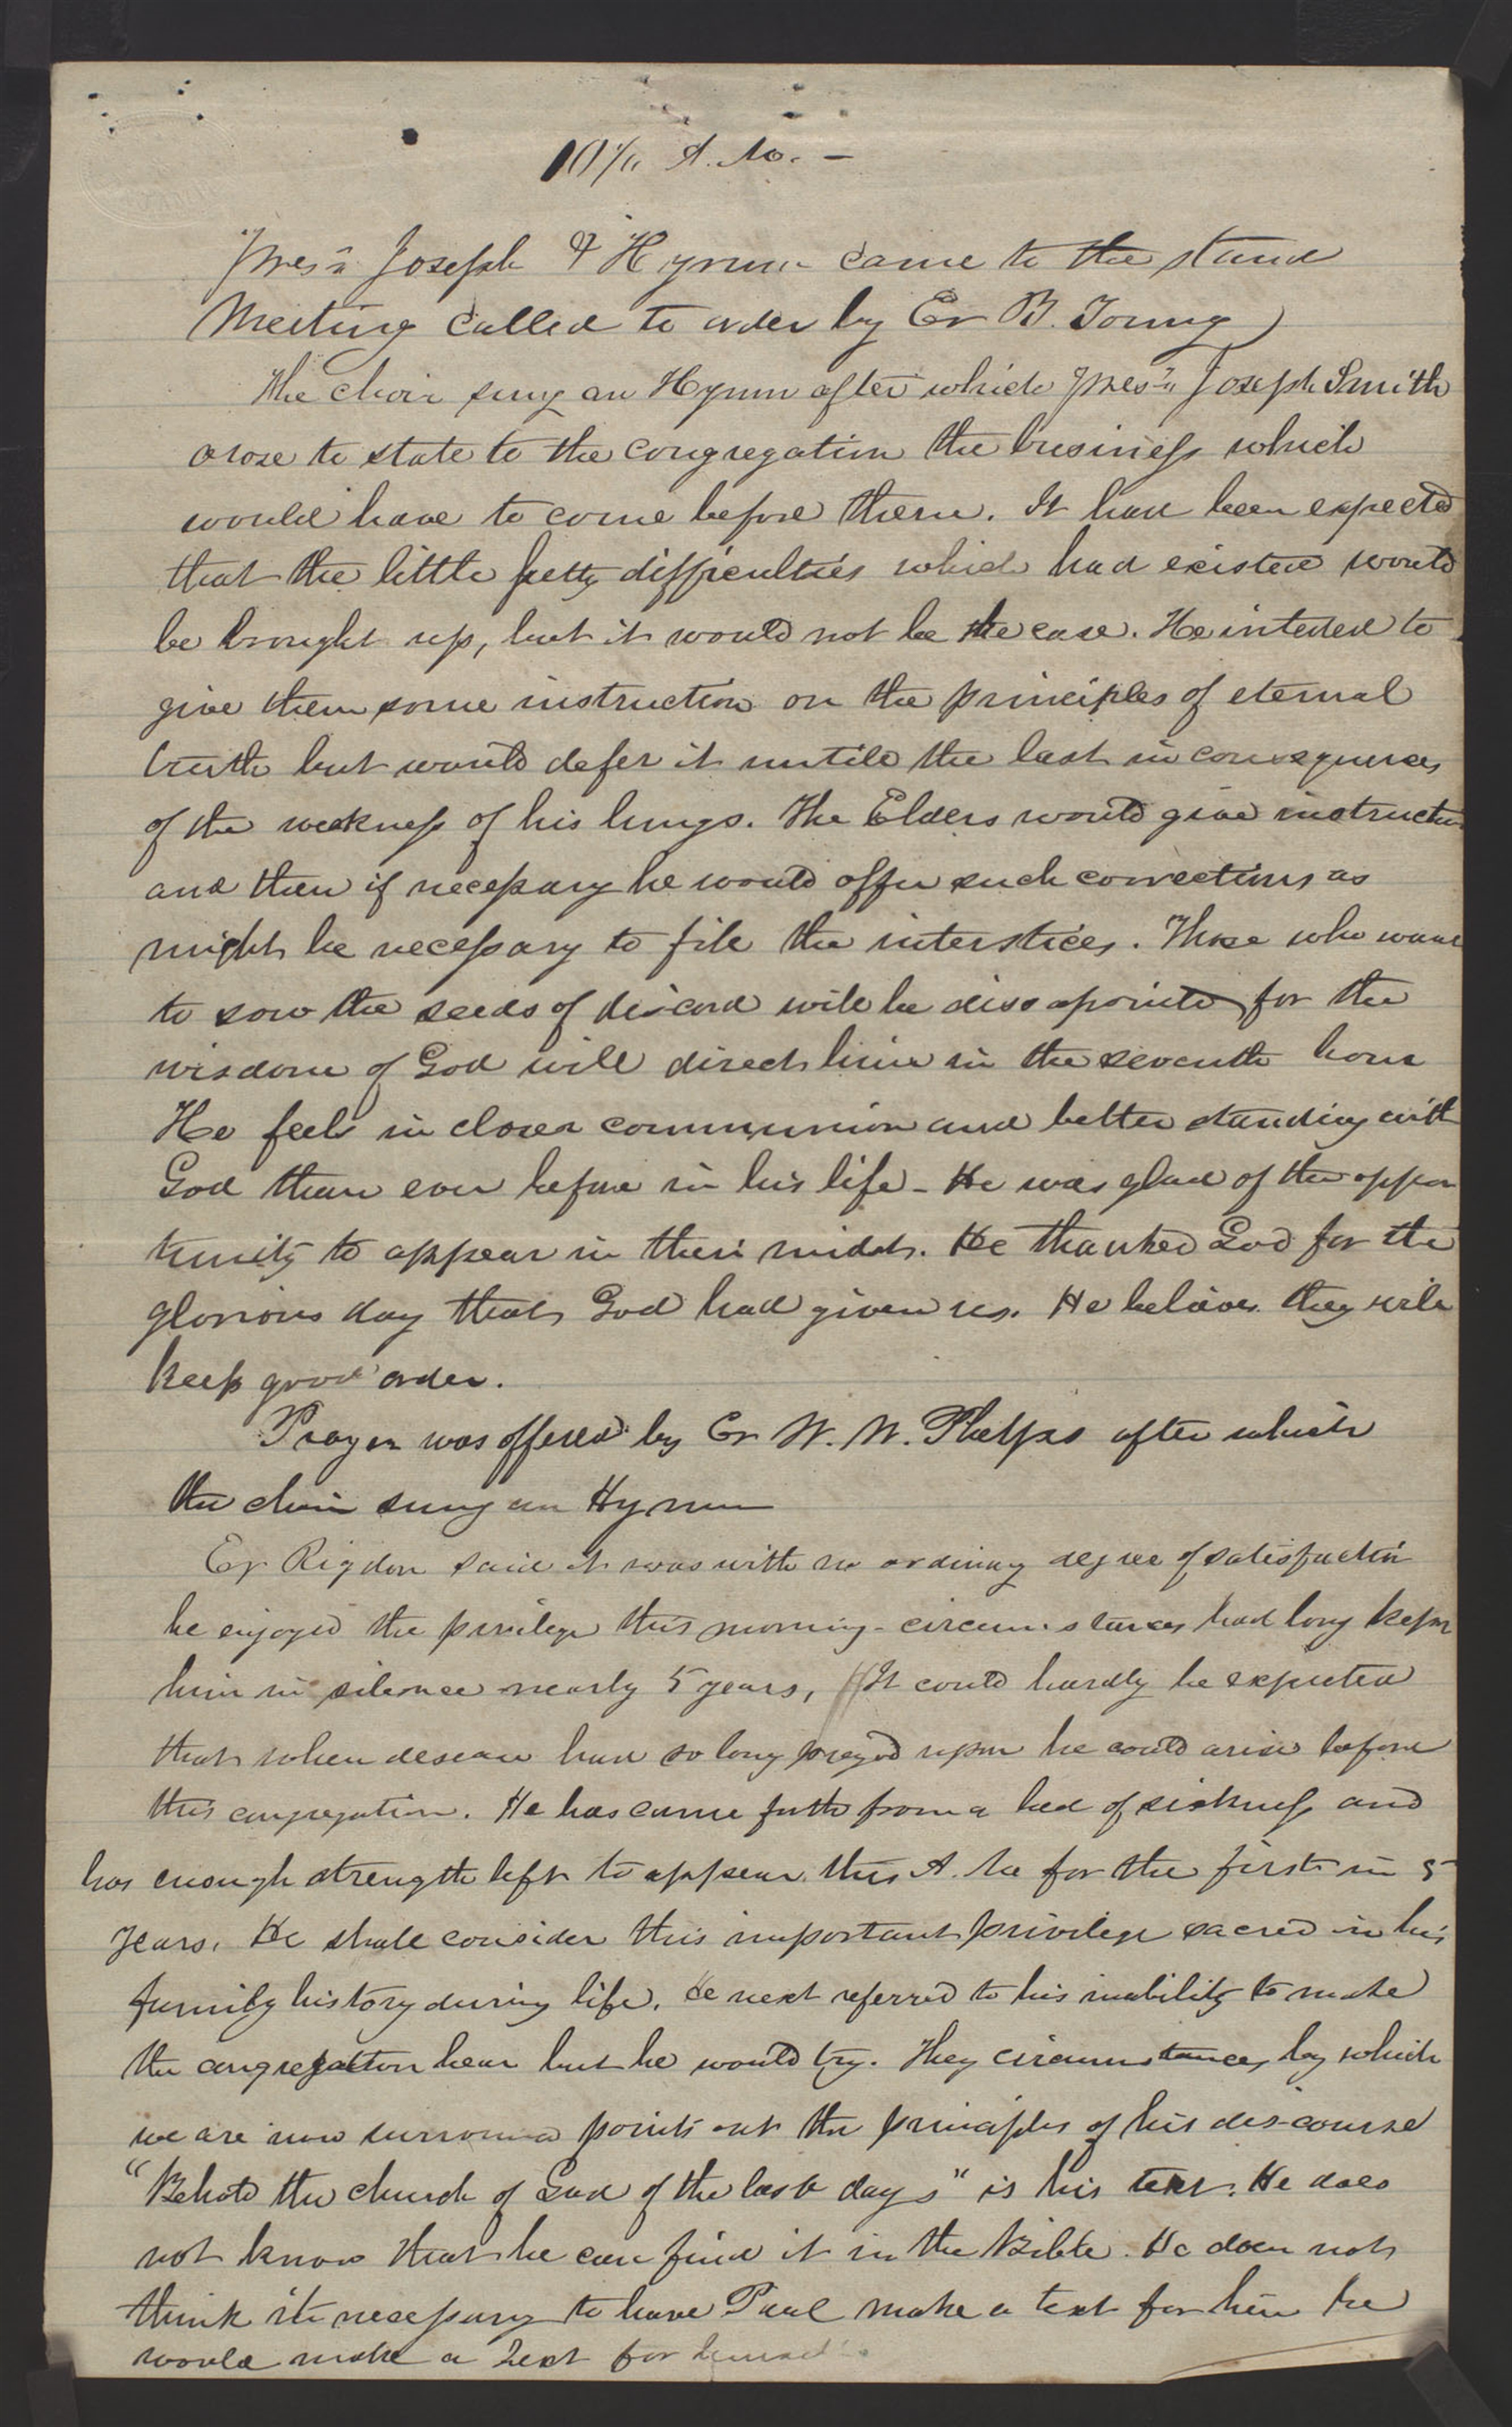 10¼ A. M. —
Pres.ts Joseph & Hyrum came to the stand
Meeting called to order by Er B. Young
The choir sung an Hymn after which pres.t Joseph Smith
arose to state to the congregation the business which
would have to come before them. It had been expected
that the little petty difficulties which had existed would
be brought up, but it would not be the case. He intended to
give them some instruction on the principles of eternal
truth but would defer it untill the last in consequences
of the weakness of his lungs. The Elders would give instruction
and then if necessary he would offer such corrections as
might be necessary to fill the interstices. Those who want
to sow the seeds of discord will be dissapointed for the
wisdom of God will direct him in the seventh hour
He feels in closer communion and better standing with
God than ever before in his life - He was glad of the oppor
tunity to appear in their midst. He thanked God for the
glorious day that God had given us. He believes they will
keep good order.
Prayer was offered by Er W. W. Phelps after which
the choir sung an Hymn
Er Rigdon said it was with no ordinary degree of satisfaction
he enjoyed the privilege this morning - circumstances had long kept
him in silence nearly 5 years, It could hardly be expected
that when desease had so long preyed upon he could arise before
this congregation. He has came forth from a bed of sickness and
has enough strength left to appear this A. M. for the first in 5
years. He shall consider this important privilege sacred in his
family history during life. He next referred to his inability to make
the congregation hear but he would try. They circumstances by which
we are now surround points out the principles of his dis-course
"Behold the church of God of the last days" is his text. He does
not know that he can find it in the Bible. He does not
think its necessary to have Paul make a text for him he
would make a text for himself.